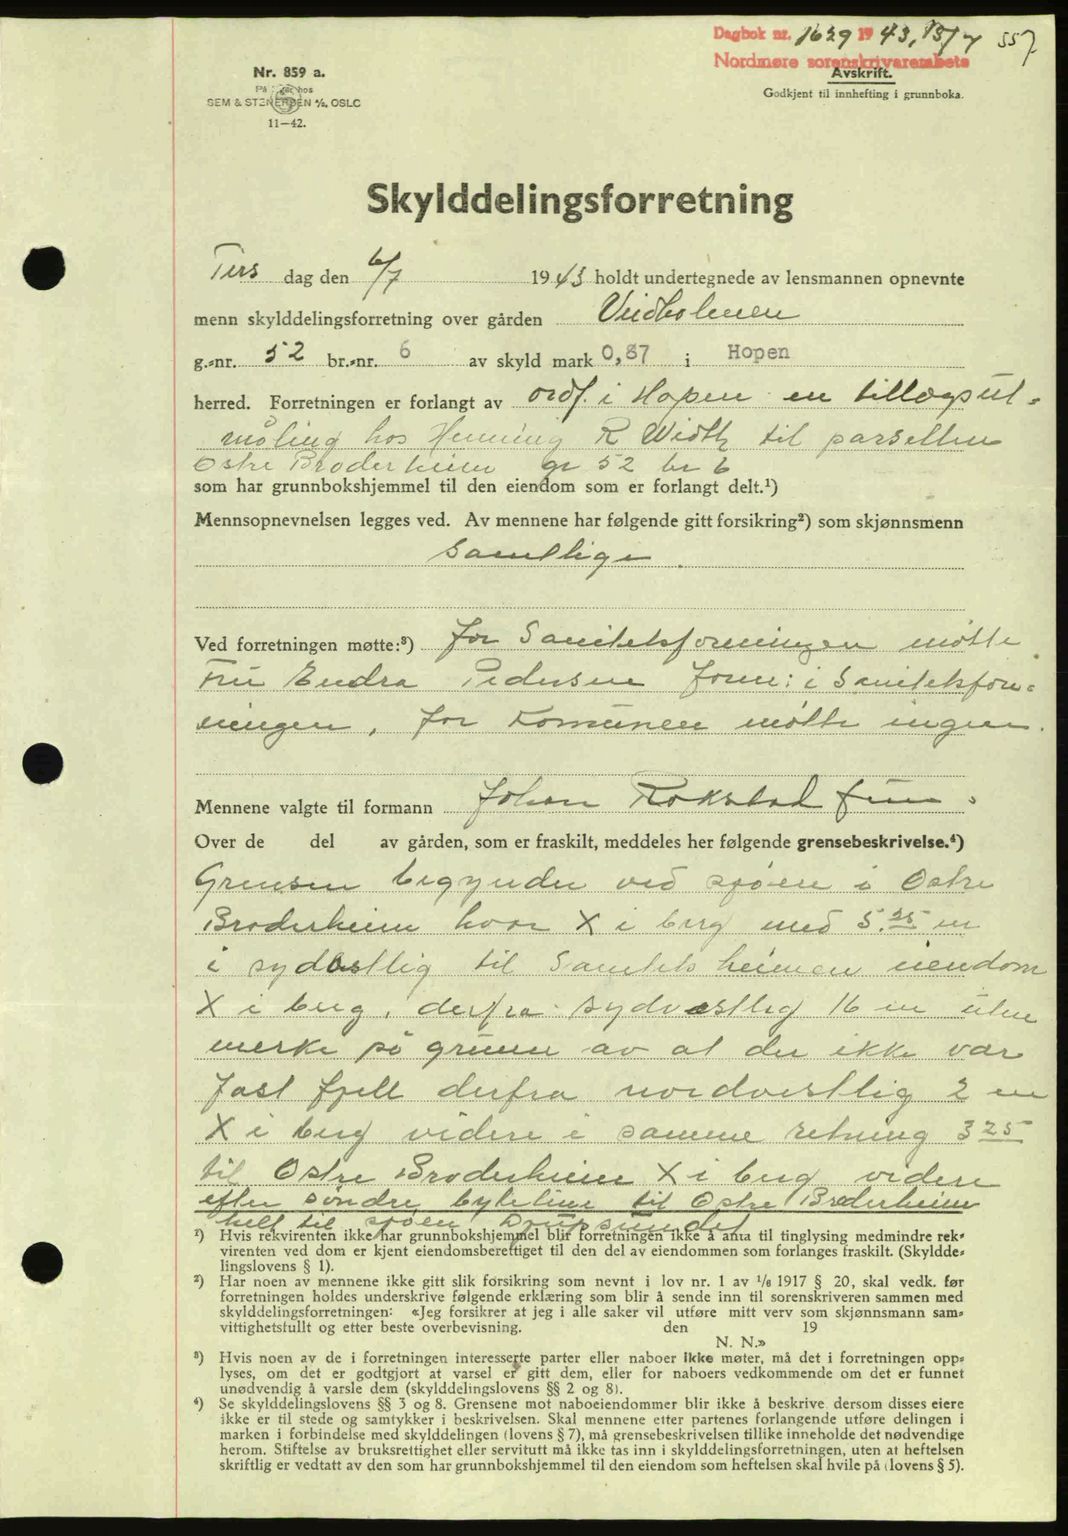 Dagbok nr. 1629 1943, 13/7 557
Nordmøre sorenskriverembete
Avskrift.
Godkjent til innhefting i grunnboka.
Nr. 859 a.
På lager hos
SEM & STENERSEN A/S, OSLO
11—42.
Skylddelingsforretning
Tirs dag den 6/7 1943 holdt undertegnede av lensmannen opnevnte
menn skylddelingsforretning over gården Veidholmen
g.-nr. 52 br.-nr. 6 av skyld mark 0,87 i Hopen
herred. Forretningen er forlangt av ordf. i Hopen en tillægsut-
måling hos Henning R Width til parsellen
Østre Broderheim gr 52 br 6
som har grunnbokshjemmel til den eiendom som er forlangt delt.¹)
Mennsopnevnelsen legges ved. Av mennene har følgende gitt forsikring²) som skjønnsmenn
samtlige.
Ved forretningen møtte:³) for Sanitetsforeningen møtte
Fru Endra Pedersen form: i Sanitetsfore-
ningen, for Komunen møtte ingen.
Mennene valgte til formann Johan Rokstad
Over de del av gården, som er fraskilt, meddeles her følgende grensebeskrivelse.⁴)
Grensen begynder ved sjøen i Østre
Broderheim hvor X i berg med 5.25 m
i sydøstlig til Sanitetsheimen eiendom
X i berg, derfra sydvestlig 16 m uten
merke på grunn av at der ikke var
fast fjell derfra nordvestlig 2 m
X i berg videre i samme retning 3 25
til Østre Broderheim X i berg videre
efter søndre bytelinie til Østre Broderheim
helt til sjøen
¹) Hvis rekvirenten ikke har grunnbokshjemmel blir forretningen ikke å anta til tinglysing medmindre rek-
virenten ved dom er kjent eiendomsberettiget til den del av eiendommen som forlanges fraskilt. (Skyldde-
lingslovens § 1).
²) Har noen av mennene ikke gitt slik forsikring som nevnt i lov nr. 1 av 1/6 1917 § 20, skal vedk. før
forretningen holdes underskrive følgende erklæring som blir å sende inn til sorenskriveren sammen med
skylddelingsforretningen: «Jeg forsikrer at jeg i alle saker vil utføre mitt verv som skjønnsmann sam-
vittighetsfullt og etter beste overbevisning. den 19
N. N.»
³) Hvis noen av de i forretningen interesserte parter eller naboer ikke møter, må det i forretningen opp-
lyses, om det er godtgjort at varsel er gitt dem, eller for naboers vedkommende om det er funnet
unødvendig å varsle dem (skylddelingslovens §§ 2 og 8).
⁴) Se skylddelingslovens §§ 3 og 8. Grensene mot naboeiendommer blir ikke å beskrive dersom disses eiere
ikke er til stede og samtykker i beskrivelsen. Skal mennene etter partenes forlangende utføre delingen i
marken i forbindelse med skylddelingen (lovens § 7), må grensebeskrivelsen tillike inneholde det nødvendige
herom. Stiftelse av bruksrettighet eller servitutt må ikke tas inn i skylddelingsforretningen, uten at heftelsen
skriftlig er vedtatt av den som har grunnbokshjemmel til den eiendom som heftelsen skal hvile på (lovens § 5).